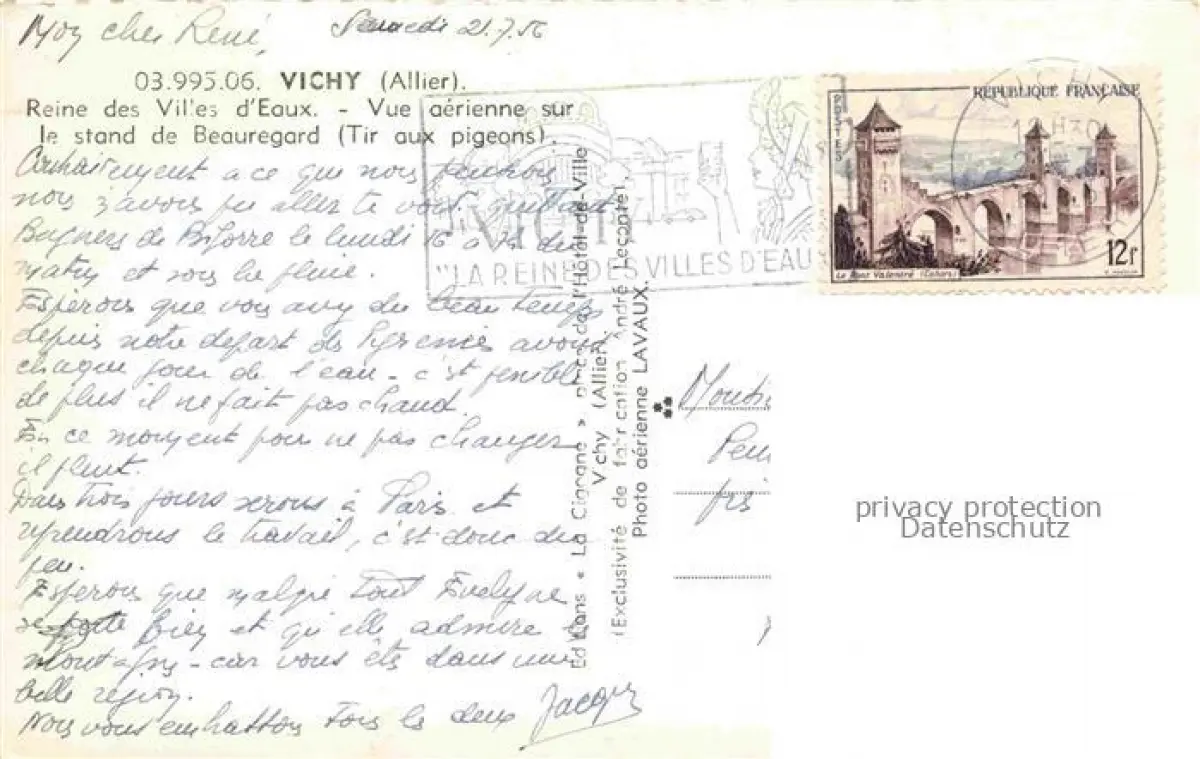 Mon cher René, Samedi 21.7.56
03.995.06. VICHY (Allier).
Reine des Villes d'Eaux. - Vue aérienne sur
le stand de Beauregard (Tir aux pigeons).
à ce que nous
nous n'avons pu aller te voir, quittant
Bagnères de Bigorre le lundi 16 à du
matin et sous la pluie.
Esperons que vous avez du beau temps
depuis notre depart des Pyrenées avons
chaque jour de l'eau - c'est penible
de plus il ne fait pas chaud.
En ce moment pour ne pas changer
il pleut.
Dans trois jours serons à Paris et
reprendrons le travail, c'est donc du
peu.
que malgré tout Evelyne
se porte bien et qu'elle admire la
montagne - car vous êtes dans une
belle région.
Nous vous embrassons tous les deux Jacques
VICHY
"LA REINE DES VILLES D'EAUX
POSTES
RÉPUBLIQUE FRANÇAISE
Le Pont Valentré (Cahors)
12f
Editions « La Cigogne » place de l'Hôtel-de-Ville
Vichy (Allier)
(Exclusivité de fabrication André Leconte)
Photo aérienne LAVAUX.
privacy protection
Datenschutz